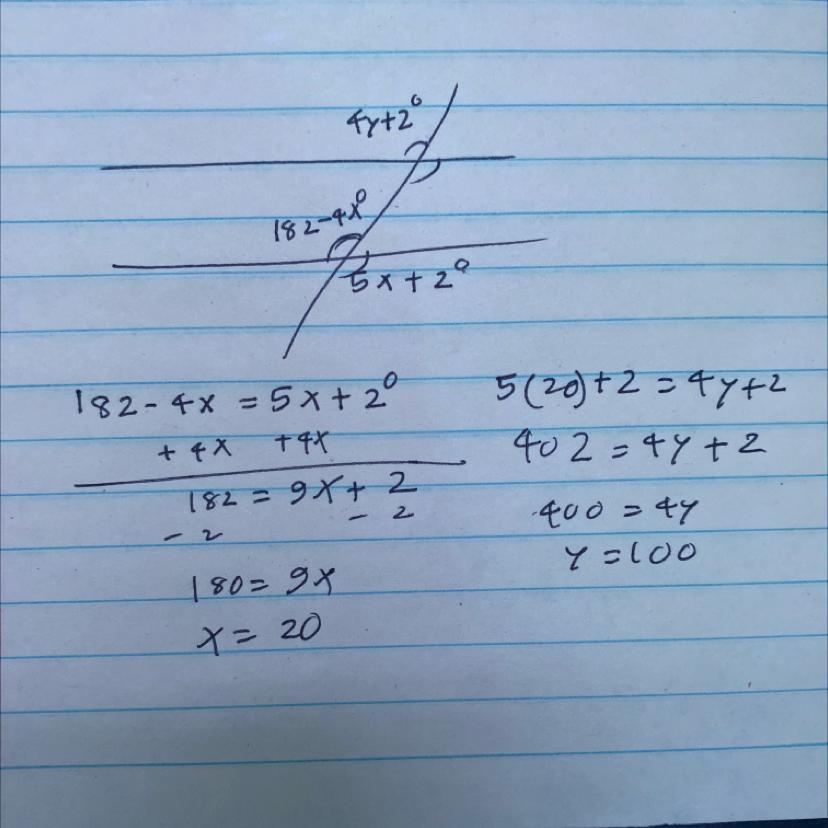 4y+2°
182-4x°
5x+2°
182-4x = 5x+2°
+4x +4x
182 = 9x+2
-2 -2
180 = 9x
x = 20
5(20)+2 = 4y+2
402 = 4y+2
400 = 4y
y = 100